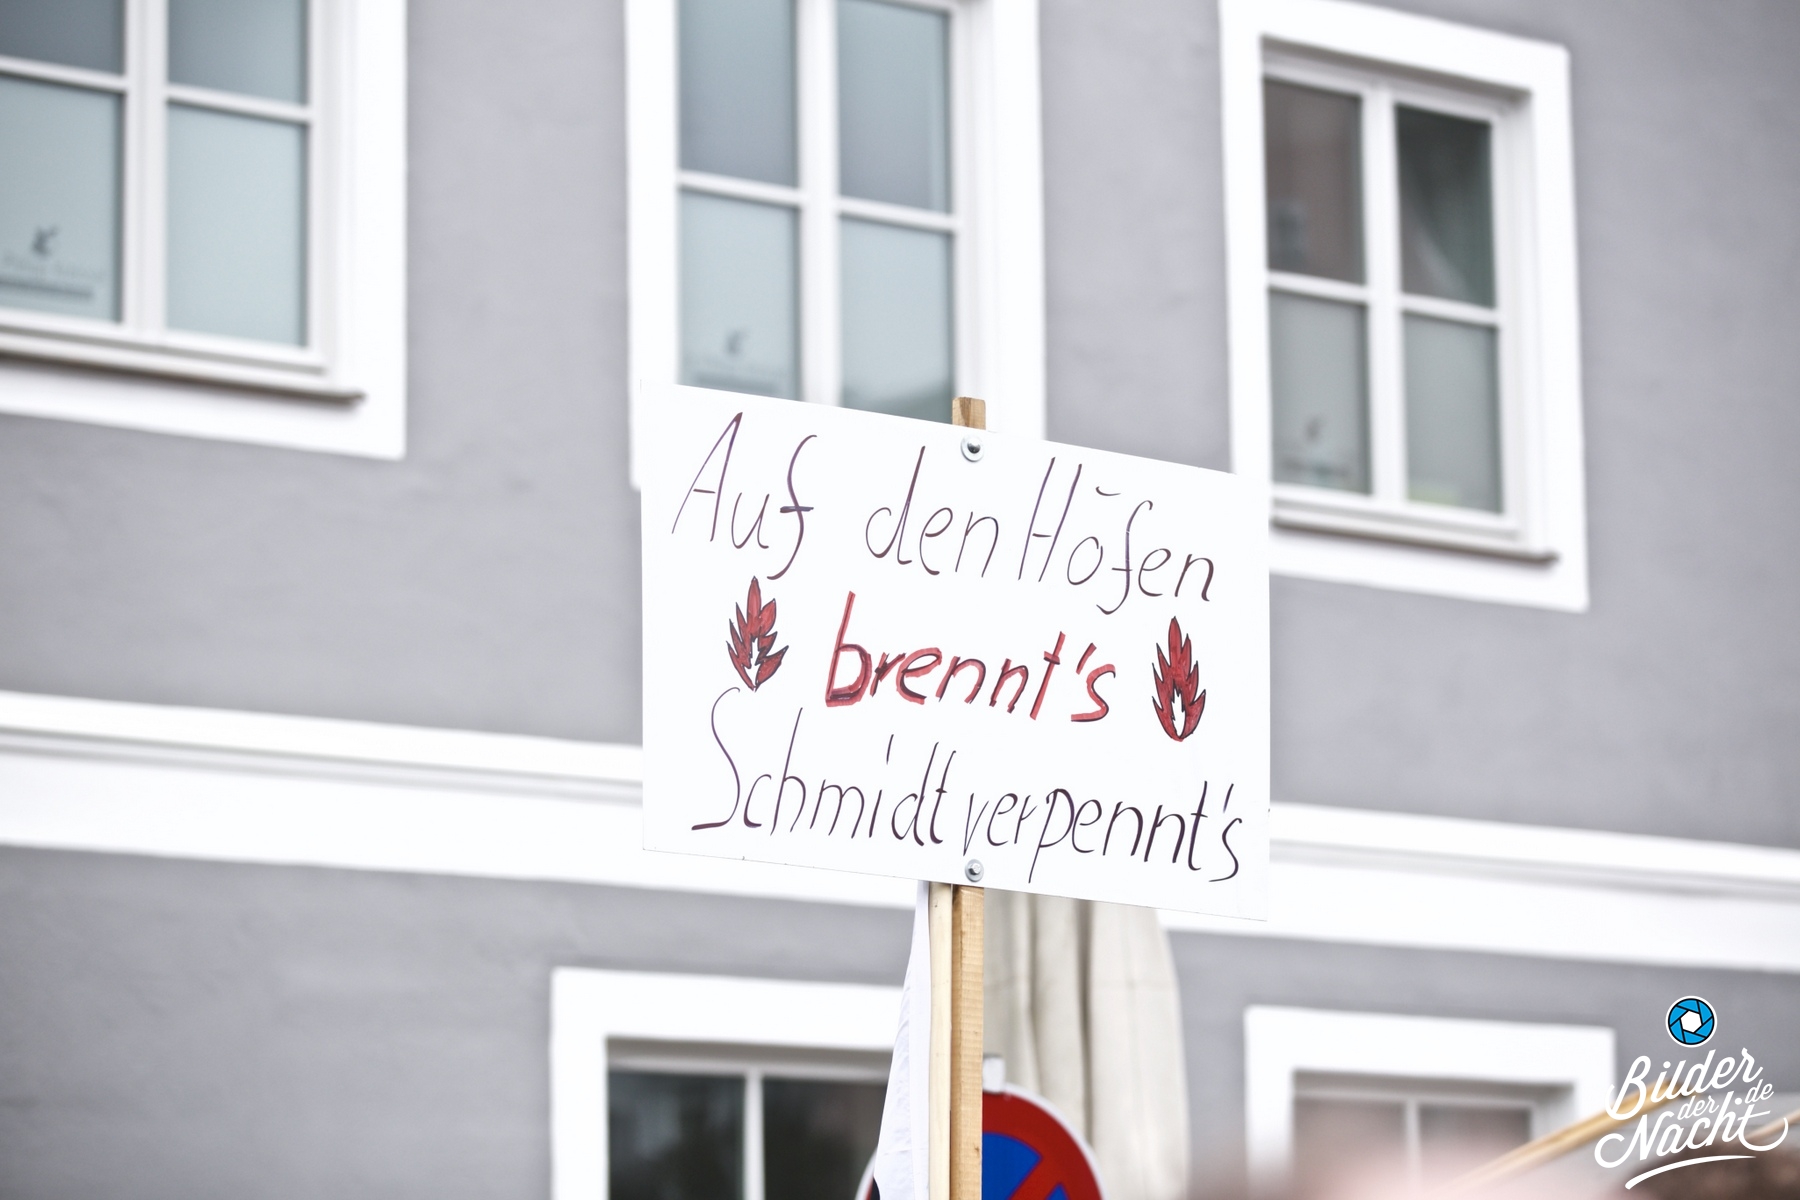 Auf den Höfen
brennt's
Schmidt verpennt's
Bilder
der
de
Nacht